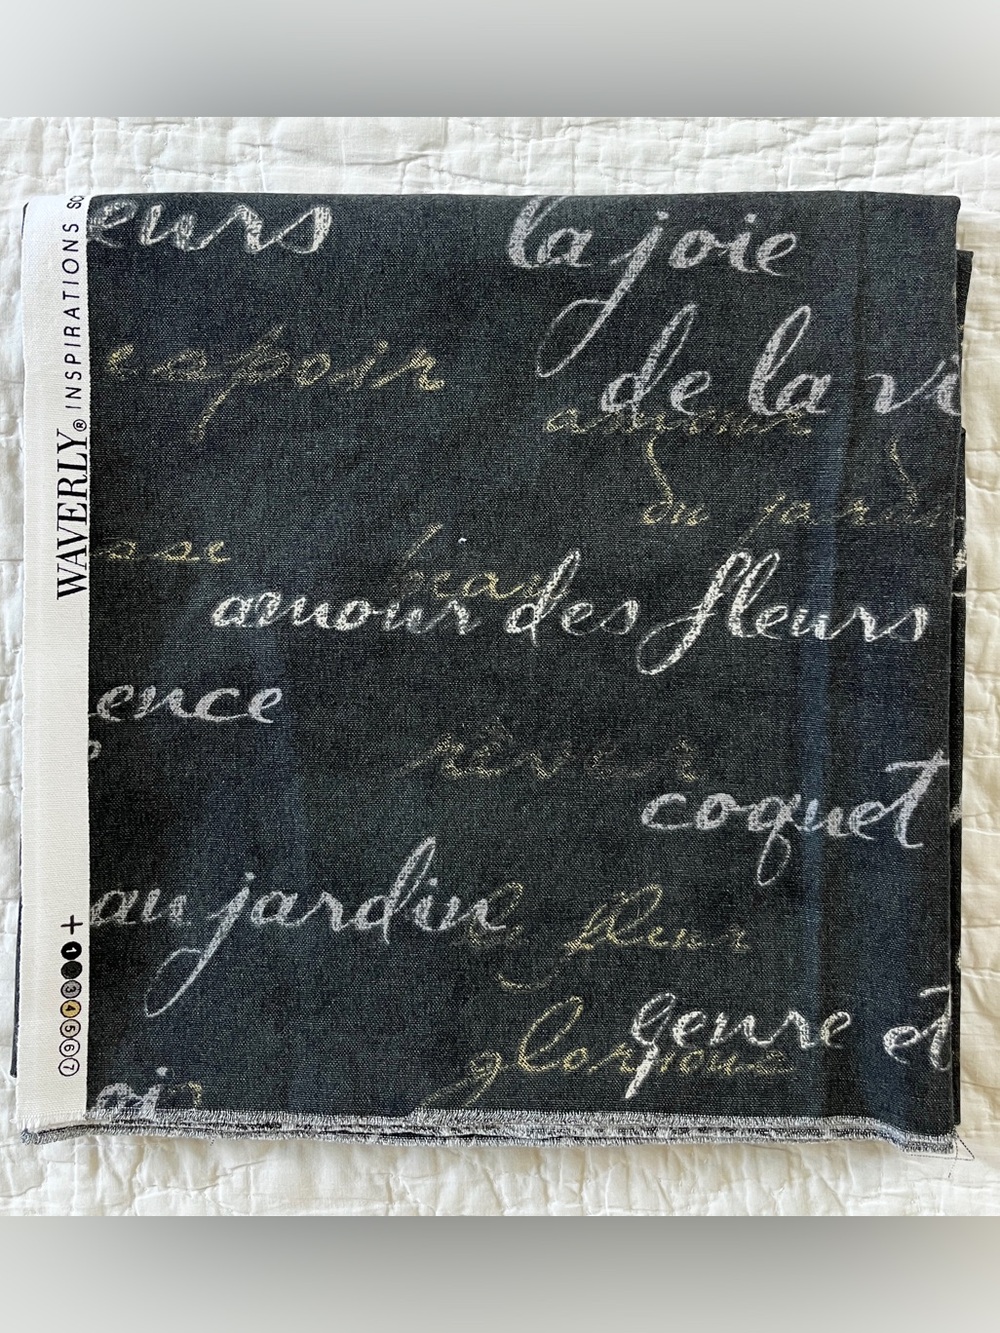 WAVERLY® INSPIRATIONS SC
eurs
la joie
espoir
de la vi
amour
du jardin
sse
beau
amour des fleurs
ence
rêver
coquet
au jardin
la fleur
genre et
glorieuse
oir
+ 1 2 3 4 5 6 7